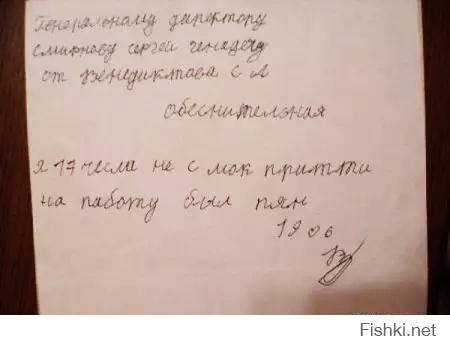 Генеральному директору
Смирнову сергей генадечу
от Венедиктова С Л
обеснительная
я 17 чесла не с мок притти
на работу был пян
19 06
Fishki.net